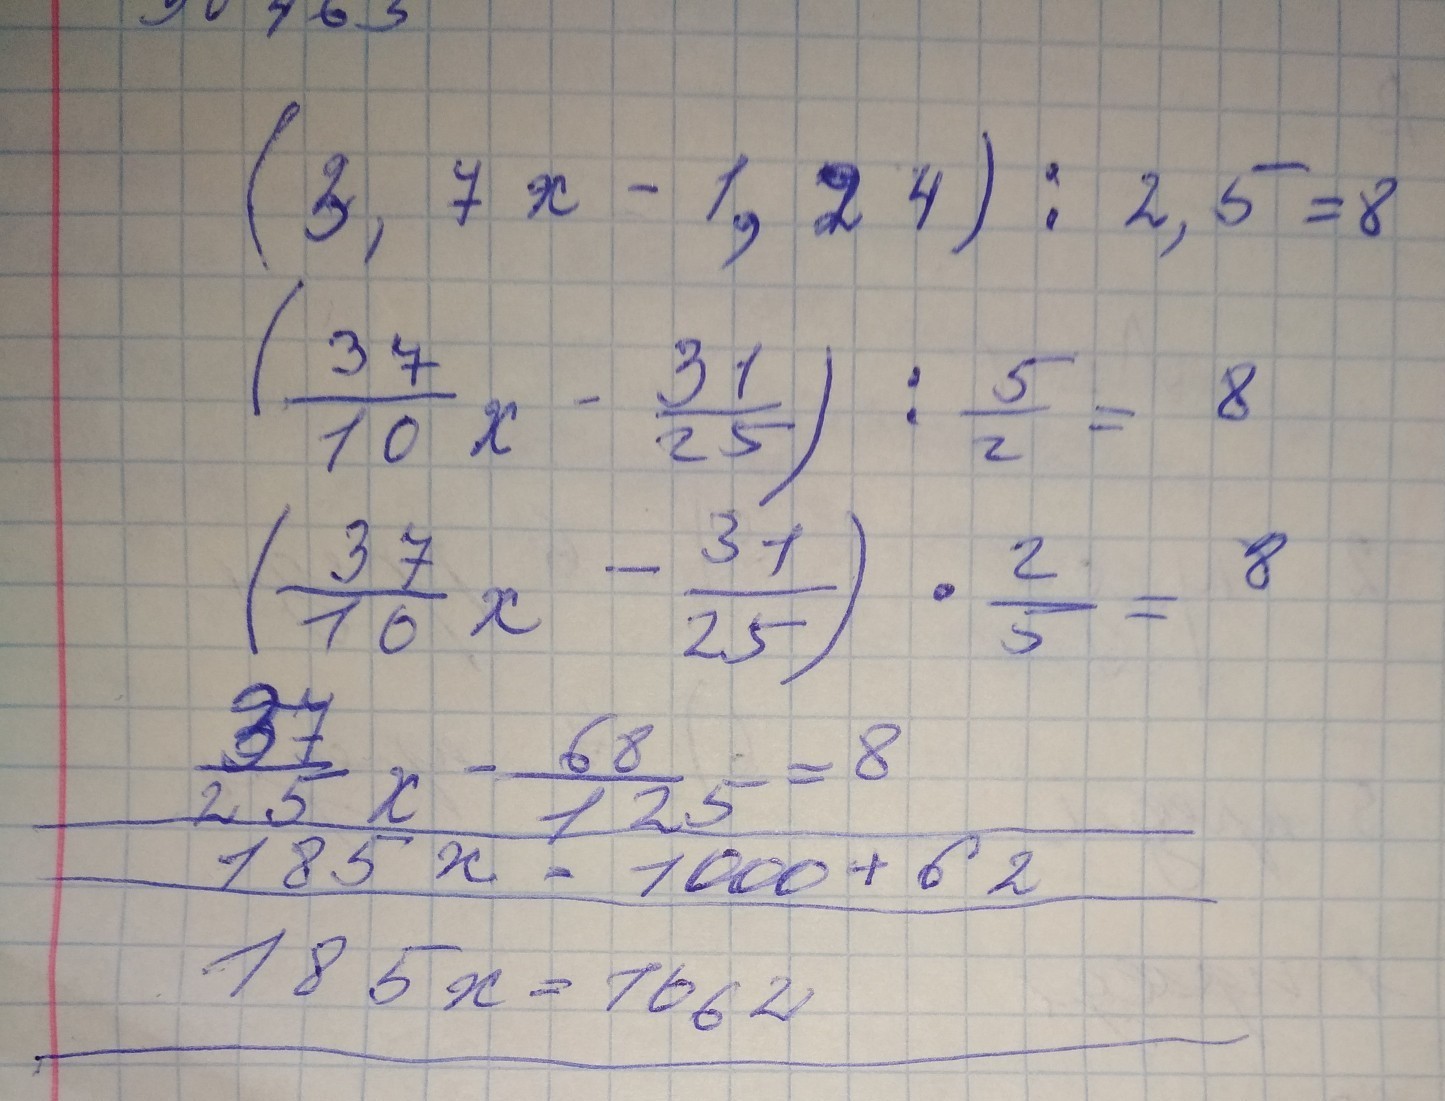 (3,7x - 1,24) : 2,5 = 8
(37/10 x - 31/25) : 5/2 = 8
(37/10 x - 31/25) · 2/5 = 8
37/25 x - 68/125 = 8
185x = 1000 + 62
185x = 1062